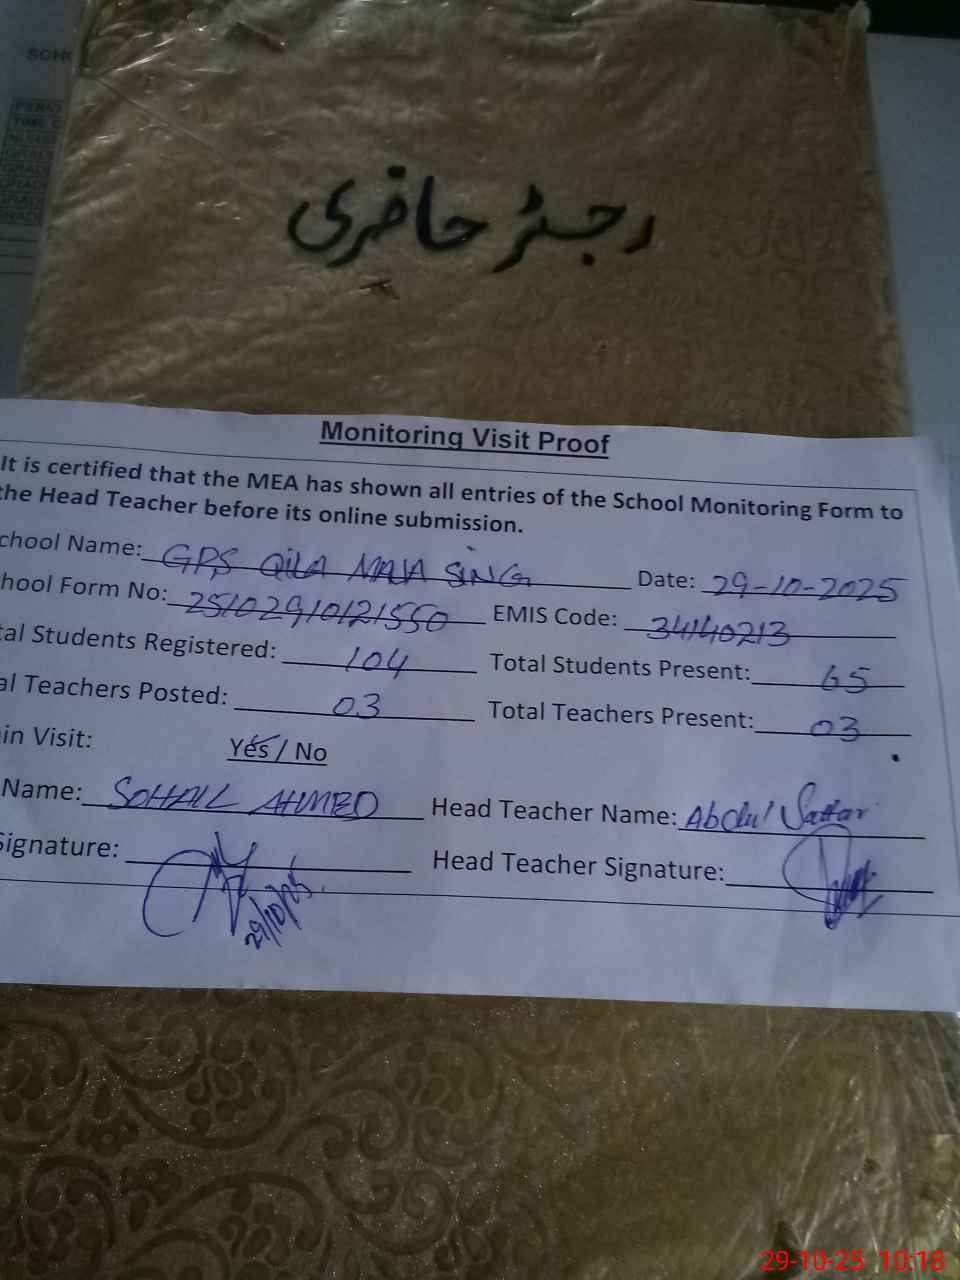 SCHO
PERIO
TIME
NURS
GRAD
GRAD
GRAD
GRAD
GRAD
رجسٹر حاضری
Monitoring Visit Proof
It is certified that the MEA has shown all entries of the School Monitoring Form to
the Head Teacher before its online submission.
chool Name: GPS QILA MAJA SING Date: 29-10-2025
hool Form No: 25102910121550 EMIS Code: 34140213
tal Students Registered: 104 Total Students Present: 65
al Teachers Posted: 03 Total Teachers Present: 03
in Visit: Yes / No
Name: SOHAIL AHMED Head Teacher Name: Abdul Sattar
Signature: Head Teacher Signature:
29/10/25
29-10-25 10:18